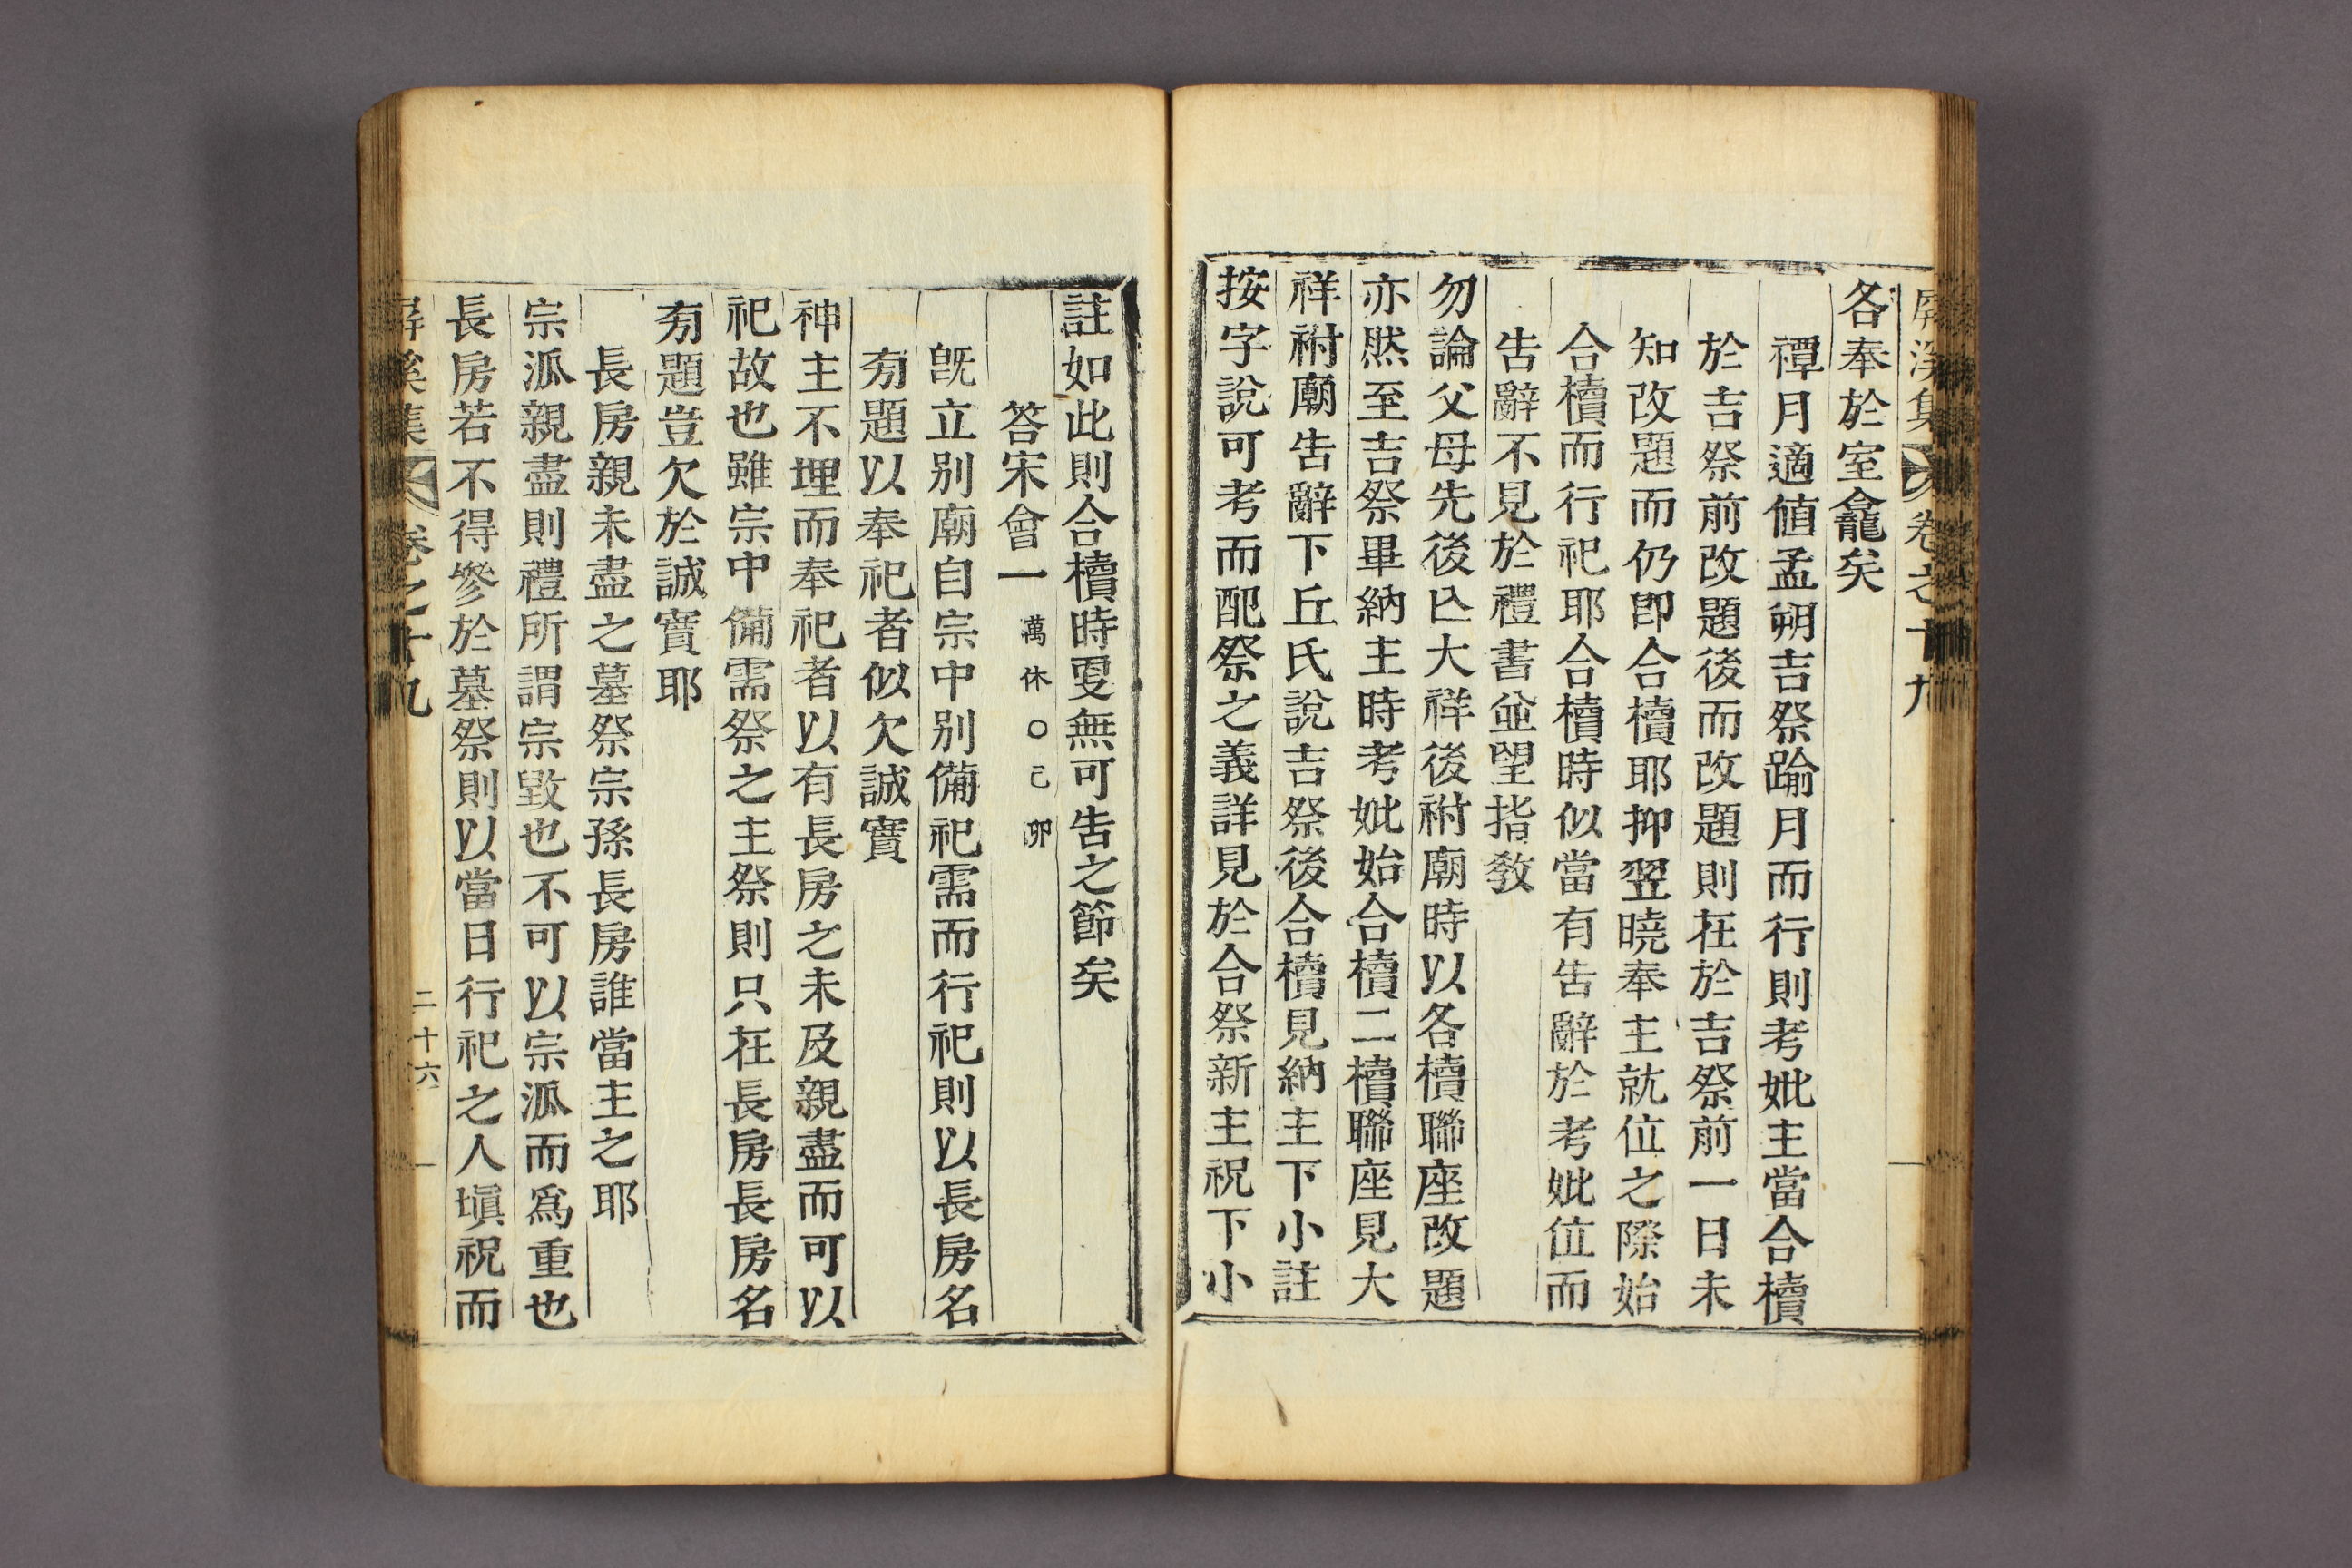 屛溪集 卷之十九
各奉於室龕矣
禫月適値孟朔吉祭踰月而行則考妣主當合櫝
於吉祭前改題後而改題則在於吉祭前一日未
知改題而仍卽合櫝耶抑翌曉奉主就位之際始
合櫝而行祀耶合櫝時似當有告辭於考妣位而
告辭不見於禮書並望指敎
勿論父母先後亡大祥後祔廟時以各櫝聯座改題
亦然至吉祭畢納主時考妣始合櫝二櫝聯座見大
祥祔廟告辭下丘氏說吉祭後合櫝見納主下小註
按字說可考而配祭之義詳見於合祭新主祝下小
註如此則合櫝時更無可告之節矣
答宋會一 萬休○己卯
旣立別廟自宗中別備祀需而行祀則以長房名
旁題以奉祀者似欠誠實
神主不埋而奉祀者以有長房之未及親盡而可以
祀故也雖宗中備需祭之主祭則只在長房長房名
旁題豈欠於誠實耶
長房親未盡之墓祭宗孫長房誰當主之耶
宗派親盡則禮所謂宗毀也不可以宗派而爲重也
長房若不得參於墓祭則以當日行祀之人塡祝而
屛溪集 卷之十九 二十六